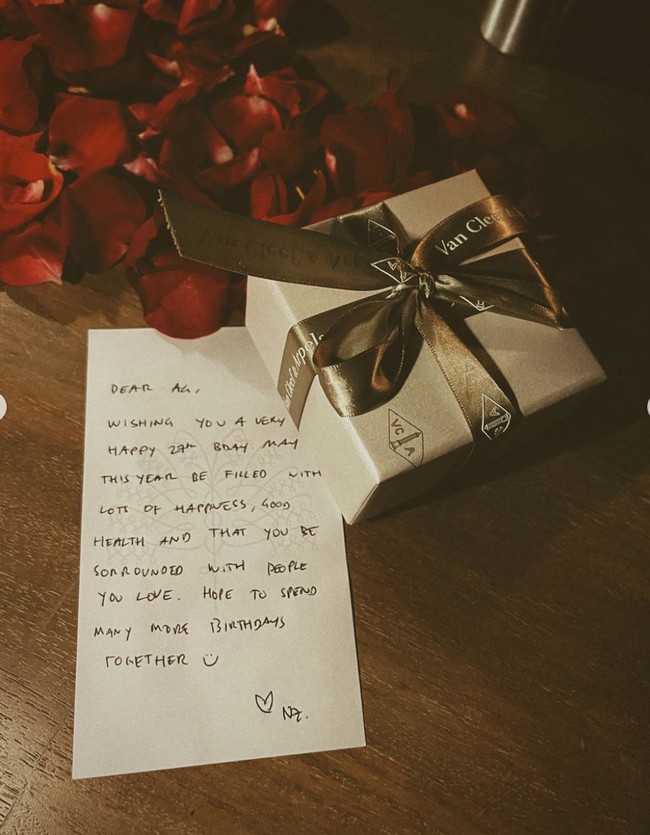 Van Cleef & Ar
Van Clee
Van Cleef & Arpels
VC
A
DEAR AG,
WISHING YOU A VERY
HAPPY 27th BDAY. MAY
THIS YEAR BE FILLED WITH
LOTS OF HAPPNESS, GOOD
HEALTH AND THAT YOU BE
SORROUNDED WITH PEOPLE
YOU LOVE. HOPE TO SPEND
MANY MORE BIRTHDAYS
TOGETHER